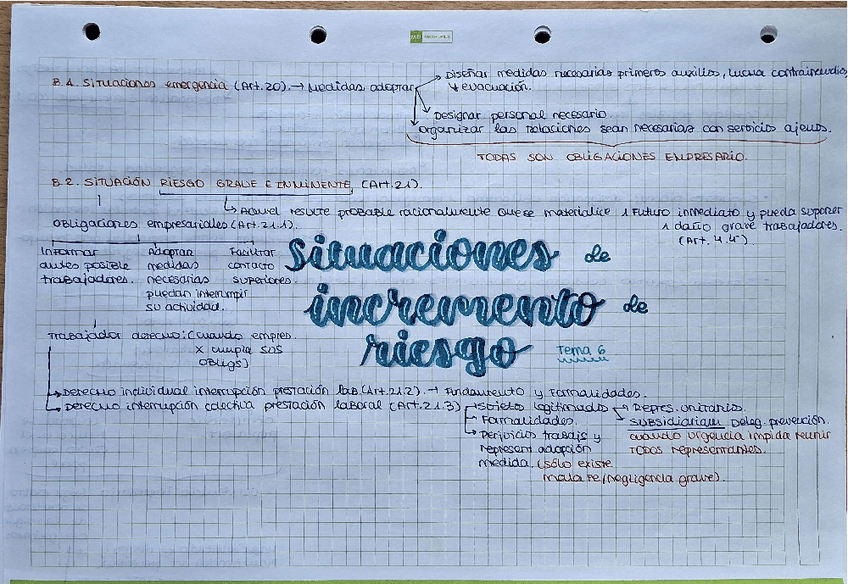 B.1. Situaciones emergencia (Art.20). → Medidas adoptar
→ Diseñar medidas necesarias primeros auxilios, lucha contraincendios
y evacuación.
→ Designar personal necesario.
→ organizar las relaciones sean necesarias con servicios ajenos.
TODAS SON OBLIGACIONES EMPRESARIO.
B.2. SITUACIÓN RIESGO GRAVE E INMINENTE (Art.21).
→ Aquel resulte probable racionalmente que se materialice 1 futuro inmediato y pueda suponer
1 daño grave trabajadores.
(Art. 4.4º)
Obligaciones empresariales (Art.21.1).
Informar
antes posible
trabajadores.
Adoptar
medidas
necesarias
puedan interrumpir
su actividad.
Facilitar
contacto
superiores.
situaciones de
incremento de
riesgo
Tema 6
Trabajador derecho: (Cuando empres.
x cumpla sus
obligs)
→ Derecho individual interrupción prestación lab. (Art.21.2) → Fundamento y Formalidades.
→ Derecho interrupción colectiva prestación laboral (Art.21.3)
→ Sujetos legitimados
→ Repres. unitarios.
→ SUBSIDIARIAM. Deleg. prevención.
cuando urgencia impida reunir
TODOS representantes.
Formalidades.
→ Perjuicios trabajo y
represent adopción
medida. (sólo existe
mala fe/negligencia grave).